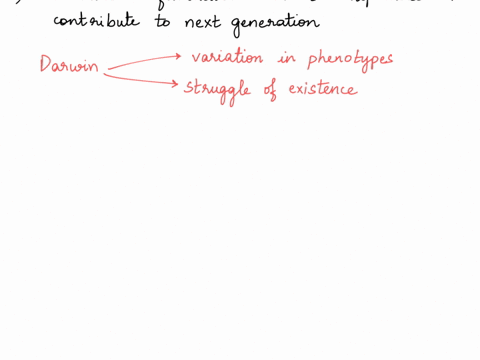 contribute to next generation
Darwin
variation in phenotypes
struggle of existence